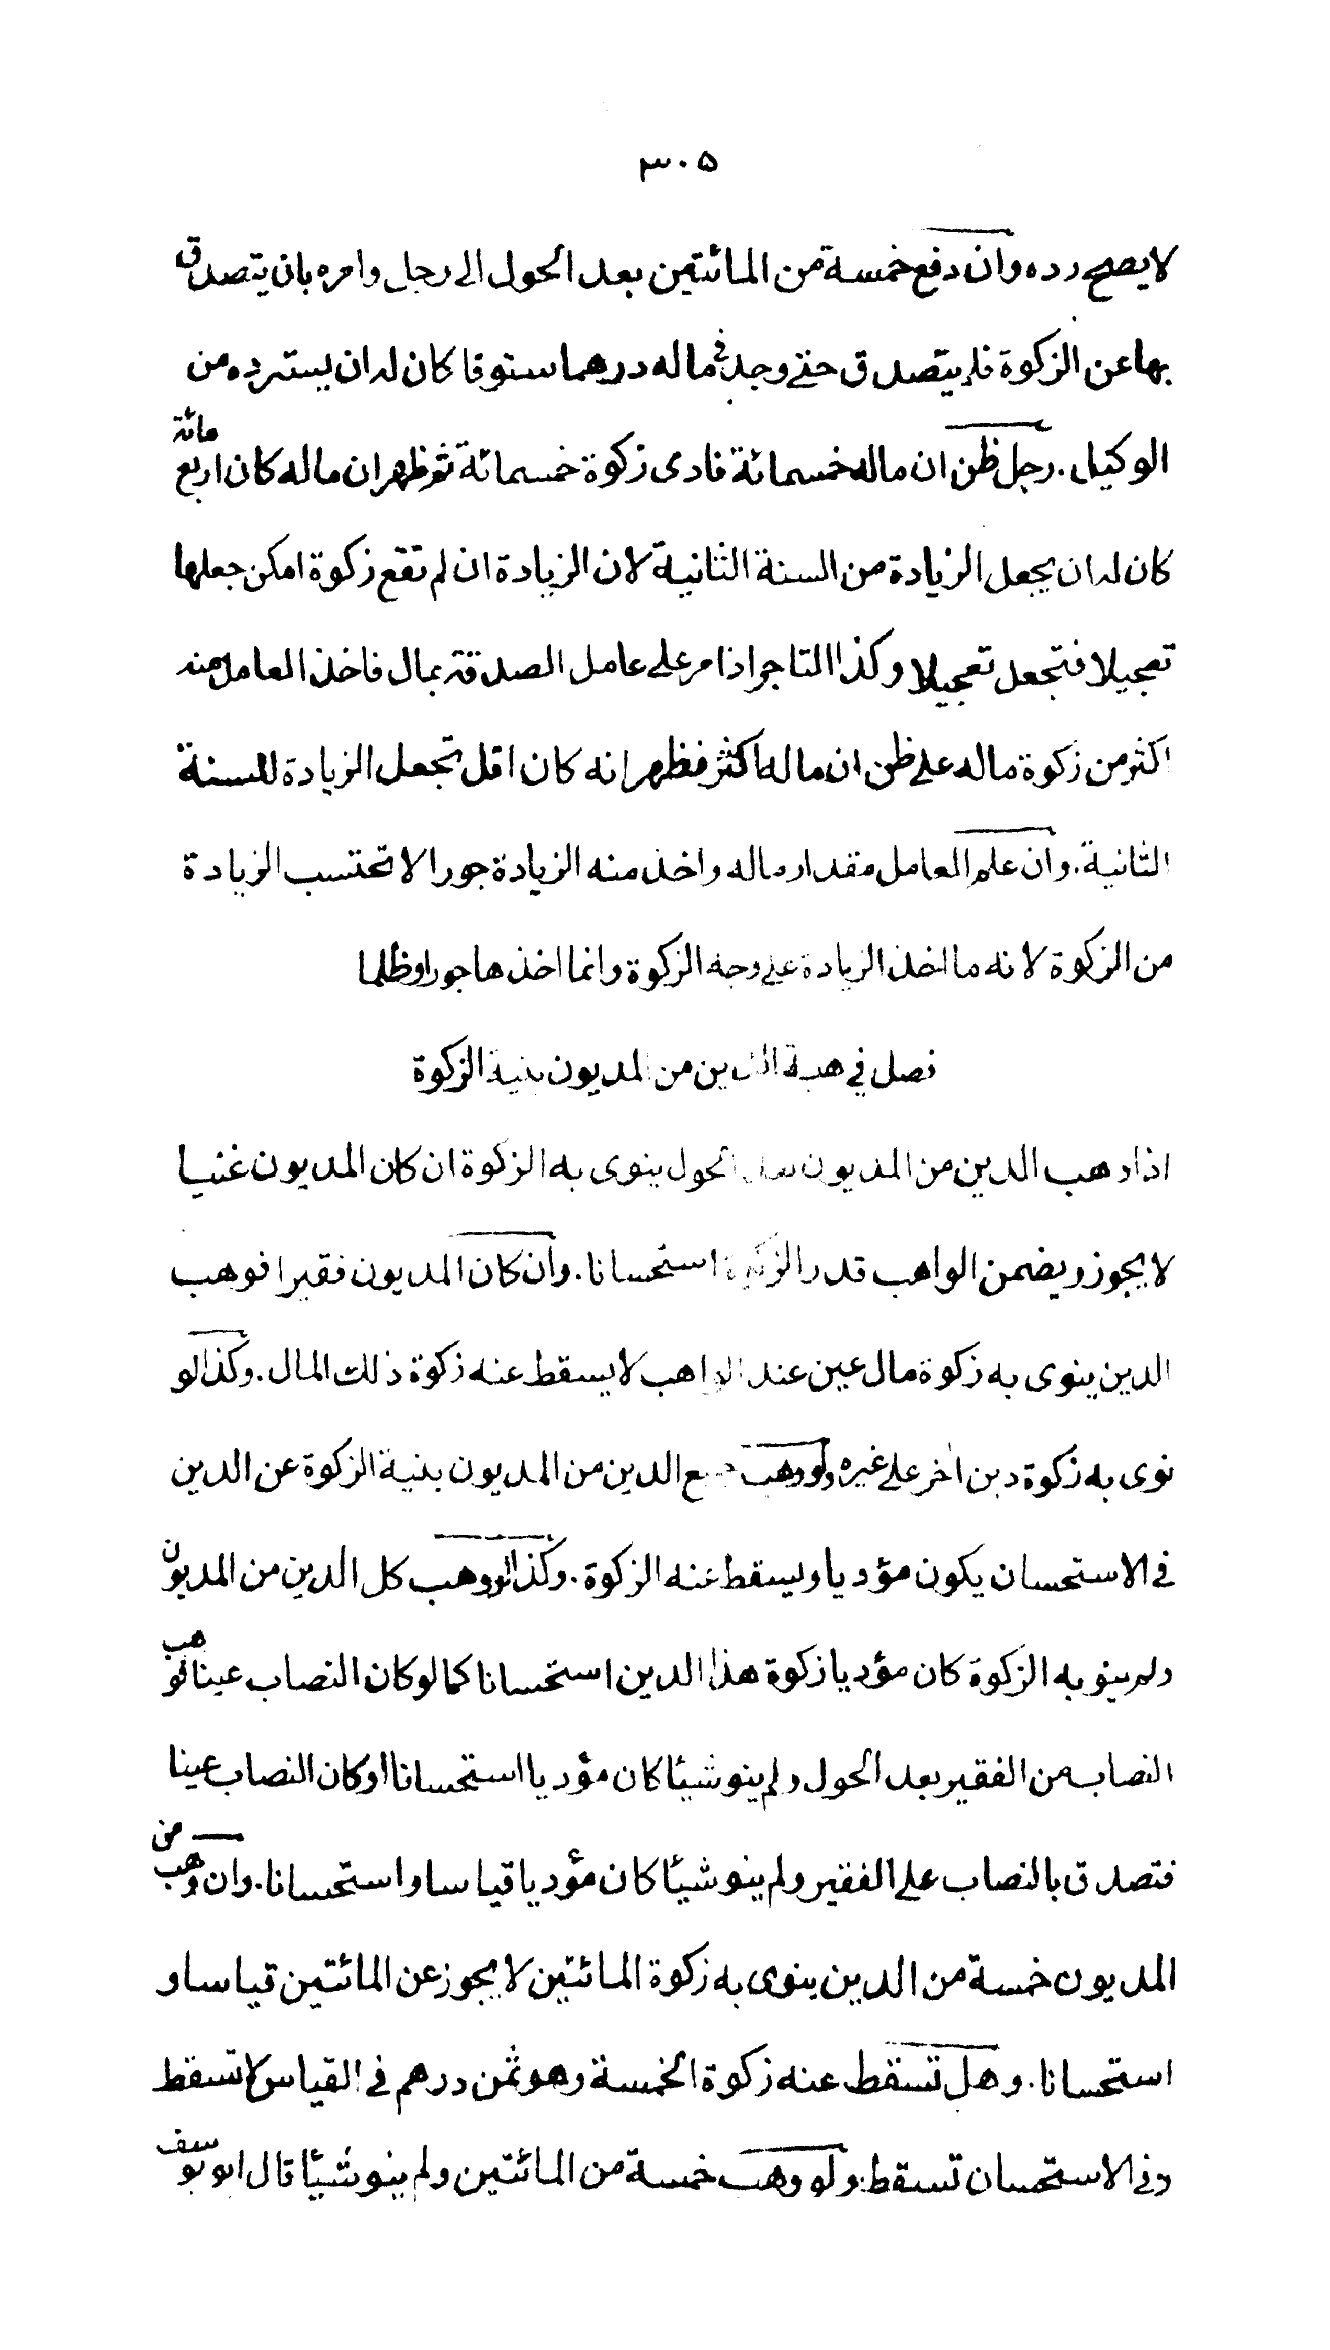 ٣٠٥
لا يصح رده وان دفع خمسة من المائتين بعد الحول الى رجل وامره بان يتصدق
بها عن الزكوة فلم يتصدق حتى وجد في ماله درهما ستوقا كان له ان يسترده من
الوكيل. رجل ظن ان ماله خمسمائة فادى زكوة خمسمائة ثم ظهر ان ماله كان اربع مائة
كان له ان يجعل الزيادة من السنة الثانية لان الزيادة ان لم تقع زكوة امكن جعلها
تعجيلا فتجعل تعجيلا وكذا التاجر اذا مر على عامل الصدقة بمال فاخذ العامل منه
اكثر من زكوة ماله على ظن ان ماله اكثر فظهر انه كان اقل تجعل الزيادة للسنة
الثانية. وان علم العامل مقدار ماله واخذ منه الزيادة جورا لا تحتسب الزيادة
من الزكوة لانه ما اخذ الزيادة على وجه الزكوة وانما اخذها جورا وظلما
فصل في هبة الدين من المديون بنية الزكوة
اذا وهب الدين من المديون بعد الحول ينوى به الزكوة ان كان المديون غنيا
لا يجوز ويضمن الواهب قدر الزكوة استحسانا. وان كان المديون فقيرا فوهب
الدين ينوى به زكوة مال عين عند الواهب لا يسقط عنه زكوة ذلك المال. وكذا لو
نوى به زكوة دين اخر على غيره ولو وهب جميع الدين من المديون بنية الزكوة عن الدين
في الاستحسان يكون مؤديا ويسقط عنه الزكوة. وكذا لو وهب كل الدين من المديون
ولم ينو به الزكوة كان مؤديا زكوة هذا الدين استحسانا كما لو كان النصاب عينا فوهب
النصاب من الفقير بعد الحول ولم ينو شيئا كان مؤديا استحسانا او كان النصاب عينا
فتصدق بالنصاب على الفقير ولم ينو شيئا كان مؤديا قياسا واستحسانا. وان وهب من
المديون خمسة من الدين ينوى به زكوة المائتين لا يجوز عن المائتين قياسا و
استحسانا. وهل تسقط عنه زكوة الخمسة وهو ثمن درهم في القياس لا تسقط
وفي الاستحسان تسقط. ولو وهب خمسة من المائتين ولم ينو شيئا قال ابو يوسف